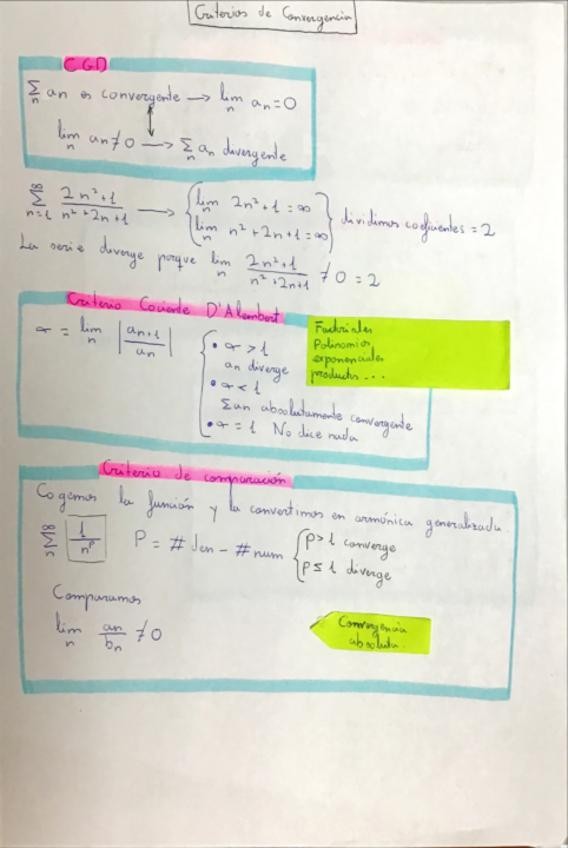 Criterios de Convergencia
CGD
∑n an es convergente → lim n an = 0
↕
lim n an ≠ 0 → ∑n an divergente
∑ n=1 ∞ (2n²+1)/(n²+2n+1) → { lim n 2n²+1 = ∞ lim n n²+2n+1 = ∞ } dividimos coeficientes = 2
La serie diverge porque lim n (2n²+1)/(n²+2n+1) ≠ 0 = 2
Criterio Cociente D'Alembert
α = lim n |an+1/an|
• α > 1
an diverge
• α < 1
∑an absolutamente convergente
• α = 1 No dice nada
Factoriales
Polinomios
exponenciales
productos ...
Criterio de comparación
Cogemos la función y la convertimos en armónica generalizada.
∑n 1/n^p P = # den - # num { p > 1 converge
p ≤ 1 diverge
Comparamos
lim n an/bn ≠ 0
Convergencia
absoluta.